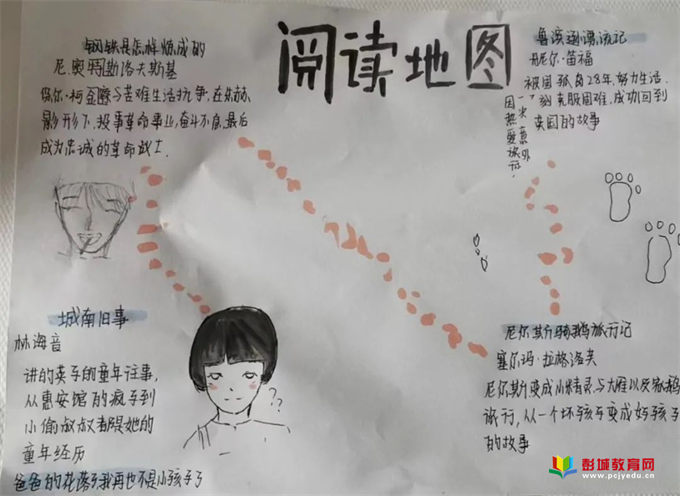 阅读地图
钢铁是怎样炼成的
尼.奥特斯洛夫斯基
保尔·柯察金与苦难生活抗争,在
影形下.投事革命事业,奋斗不息.最后
成为忠诚的革命战士.
鲁滨逊漂流记
丹尼尔·笛福
被困孤岛28年,努力生活.
刻克服困难,成功回到
英国的故事
因热爱
一次意外
城南旧事
林海音
讲的英子的童年往事,
从惠安馆的疯子到
小偷叔叔都是她的
童年经历
爸爸的花落了我再也不是小孩子了
??
尼尔斯骑鹅旅行记
塞尔玛·拉格洛夫
尼尔斯变成小精灵与大雁以及家鹅
旅行,从一个坏孩子变成好孩子
的故事
彭城教育网
www.pcjyedu.cn